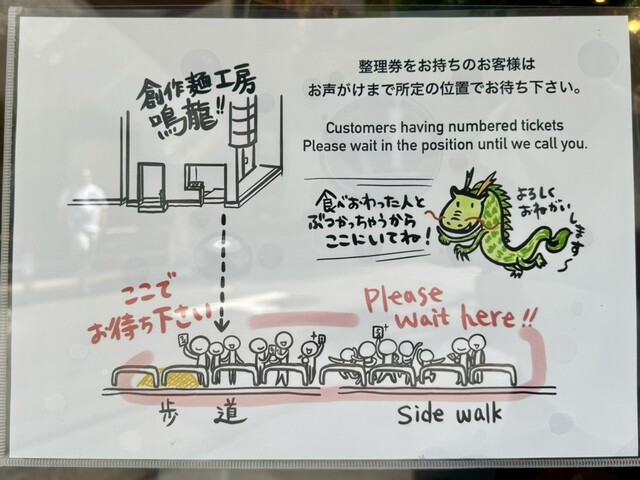 創作麺工房
鳴龍!!
整理券をお持ちのお客様は
お声がけまで所定の位置でお待ち下さい。
Customers having numbered tickets
Please wait in the position until we call you.
食べおわった人と
ぶつかっちゃうから
ここにいてね!
よろしく
おねがい
します〜
ここで
お待ち下さい
Please
wait here!!
歩道
Side walk